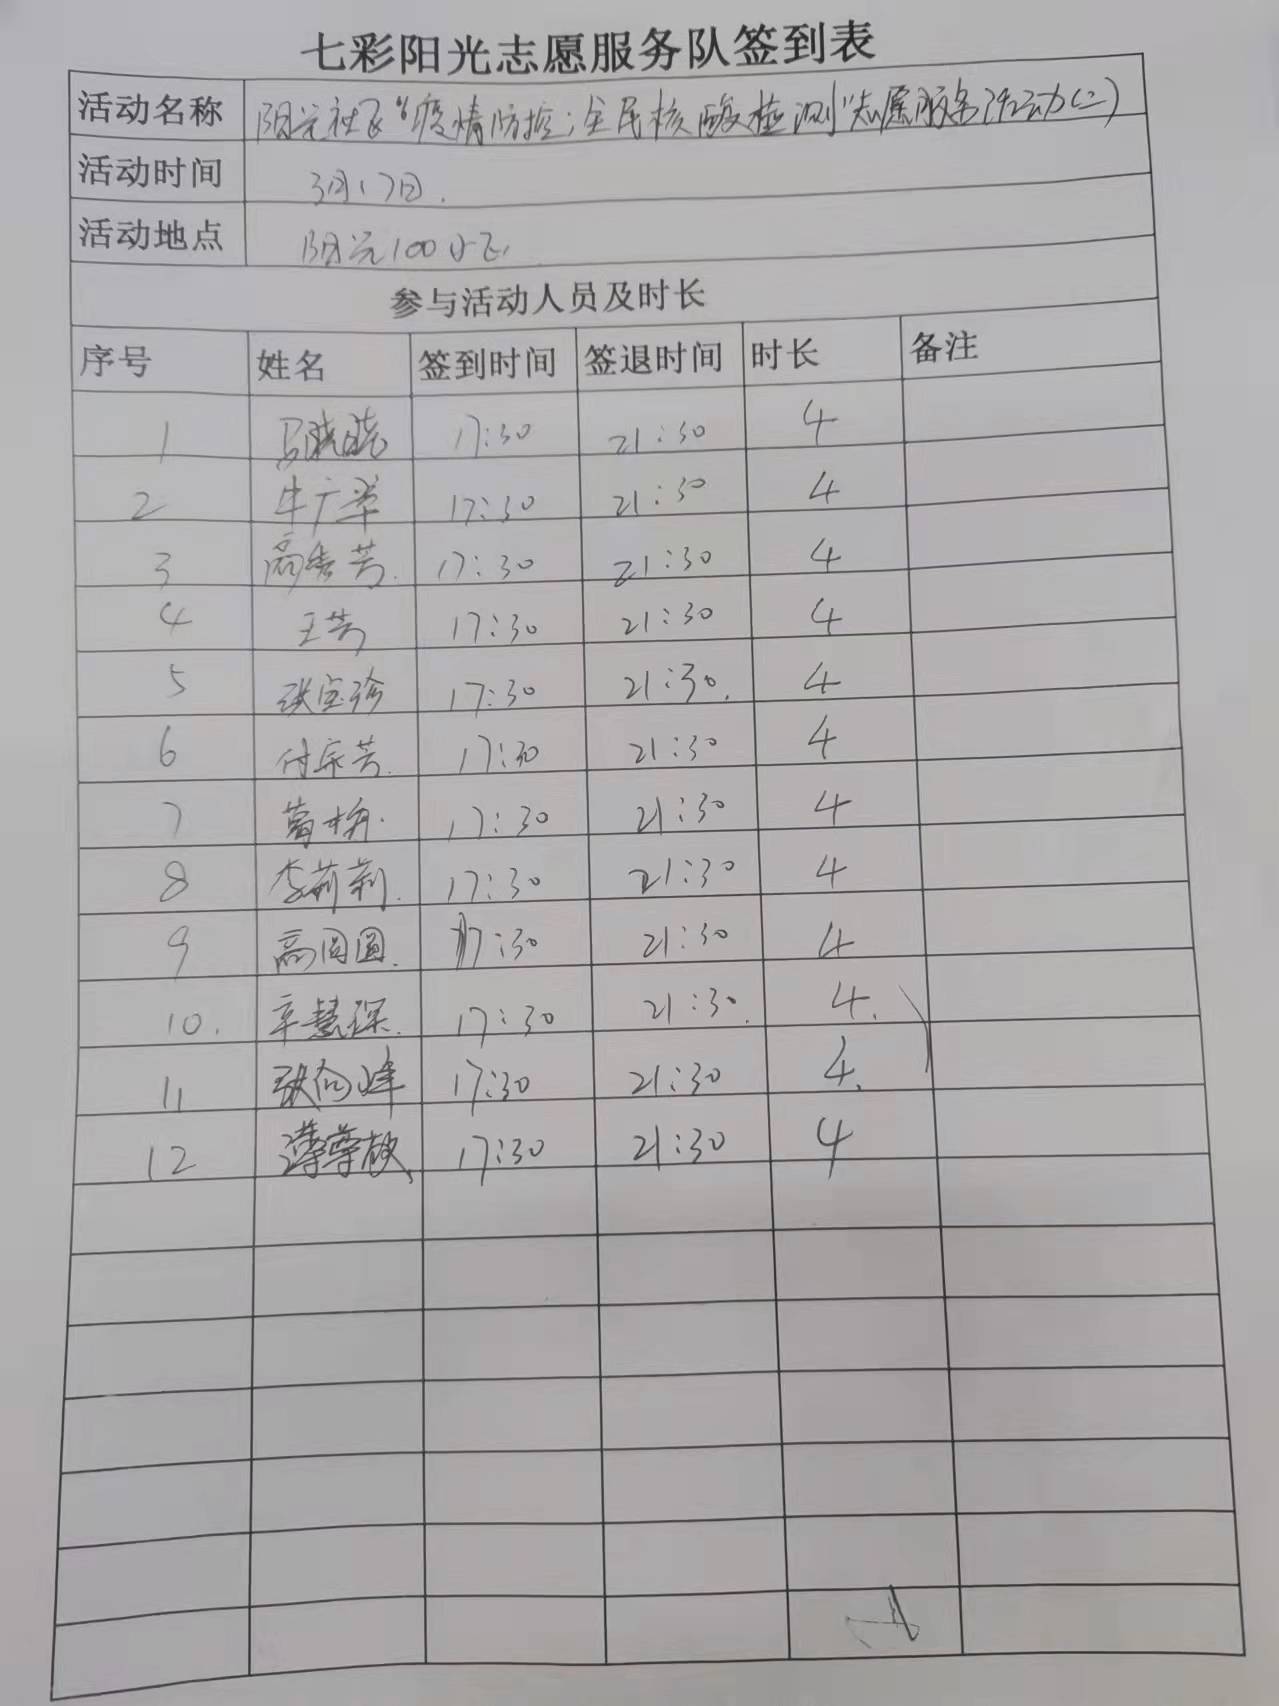 七彩阳光志愿服务队签到表
活动名称 阳光社区“疫情防控;全民核酸检测”志愿服务活动(二)
活动时间 3月17日.
活动地点 阳光100小区
参与活动人员及时长
序号 姓名 签到时间 签退时间 时长 备注
1 马晓晓 17:30 21:30 4
2 牛广举 17:30 21:30 4
3 高秀芳. 17:30 21:30 4
4 王芳 17:30 21:30 4
5 张宝珍 17:30 21:30. 4
6 付宗芳. 17:30 21:30 4
7 葛梅. 17:30 21:30 4
8 李莉莉. 17:30 21:30 4
9 高圆圆. 17:30 21:30 4
10. 辛慧琛. 17:30 21:30. 4.
11 张向峰 17:30 21:30 4.
12 17:30 21:30 4